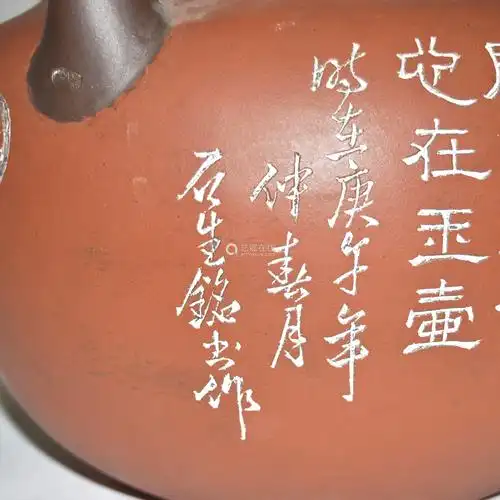 心在玉壺
時在庚午年
仲春月
石生銘出作